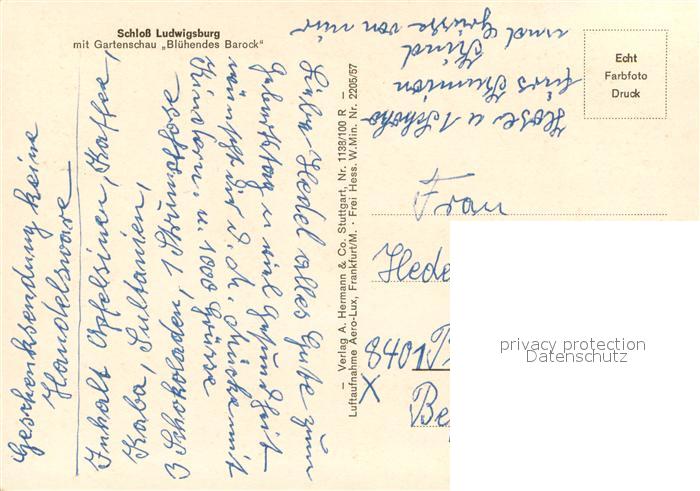 Schloß Ludwigsburg
mit Gartenschau „Blühendes Barock"
Geschenksendung keine
Handelsware
Inhalt Apfelsinen, Kaffee,
Kaba, Sultanien,
3 Schokoladen, 1 Strumpfhose
Liebe Hedel alles Gute zum
Geburtstag u. viel Gesundheit
wünscht dir d. M. mit
Kindern. u. 1000 Grüsse
Hose u 1 Schoko
fürs
Kind
und Grüsse von mir
— Verlag A. Hermann & Co. Stuttgart, Nr. 1138/100 R —
Luftaufnahme Aero-Lux, Frankfurt/M. · Frei Hess. W.Min. Nr. 2205/57
Echt
Farbfoto
Druck
Frau
Hede
8401
X
Be
privacy protection
Datenschutz